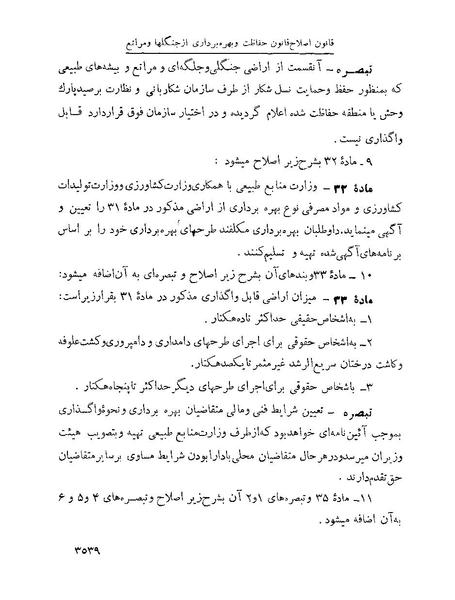 قانون اصلاح قانون حفاظت و بهره‌برداری از جنگلها و مراتع
تبصره – آنقسمت از اراضی جنگلی و جلگه‌ای و مراتع و بیشه‌های طبیعی
که بمنظور حفظ و حمایت نسل شکار از طرف سازمان شکاربانی و نظارت برصید پارك
وحش یا منطقه حفاظت شده اعلام گردیده و در اختیار سازمان فوق قراردارد قابل
واگذاری نیست .
۹ ـ مادهٔ ۳۲ بشرح‌زیر اصلاح میشود :
مادهٔ ۳۲ – وزارت منابع طبیعی با همکاری وزارت کشاورزی و وزارت تولیدات
کشاورزی و مواد مصرفی نوع بهره برداری از اراضی مذکور در مادهٔ ۳۱ را تعیین و
آگهی مینماید. داوطلبان بهره‌برداری مکلفند طرحهای بهره‌برداری خود را بر اساس
برنامه‌های آگهی شده تهیه و تسلیم کنند .
۱۰ – مادهٔ ۳۳ و بندهای آن بشرح زیر اصلاح و تبصره‌ای به آن اضافه میشود:
مادهٔ ۳۳ – میزان اراضی قابل واگذاری مذکور در مادهٔ ۳۱ بقرار زیر است:
۱ـ به اشخاص حقیقی حداکثر تا ده هکتار .
۲ـ به اشخاص حقوقی برای اجرای طرحهای دامداری و دامپروری و کشت علوفه
و کاشت درختان سریع الرشد غیر مثمر تا یکصد هکتار.
۳ـ باشخاص حقوقی برای اجرای طرحهای دیگر حداکثر تا پنجاه هکتار .
تبصره – تعیین شرایط فنی و مالی متقاضیان بهره برداری و نحوهٔ واگذاری
بموجب آئین‌نامه‌ای خواهد بود که از طرف وزارت منابع طبیعی تهیه و بتصویب هیئت
وزیران میرسد و در هر حال متقاضیان محلی با دارا بودن شرایط مساوی بر سایر متقاضیان
حق تقدم دارند .
۱۱ـ مادهٔ ۳۵ و تبصره‌های ۱ و ۲ آن بشرح زیر اصلاح و تبصره‌های ۴ و ۵ و ۶
به آن اضافه میشود .
۳۵۳۹